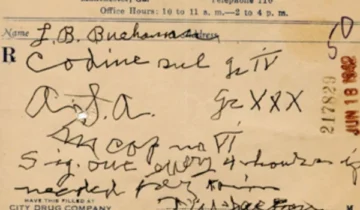 Telephone 110
Office Hours: 10 to 11 a. m.—2 to 4 p. m.
Name L. B. Buchanan Address
R Codine sul gr IV
A.S.A. gr XXX
In cap no VI
Sig. one every 4 hours if
needed for pain
HAVE THIS FILLED AT
CITY DRUG COMPANY
217829
JUN 18 1942